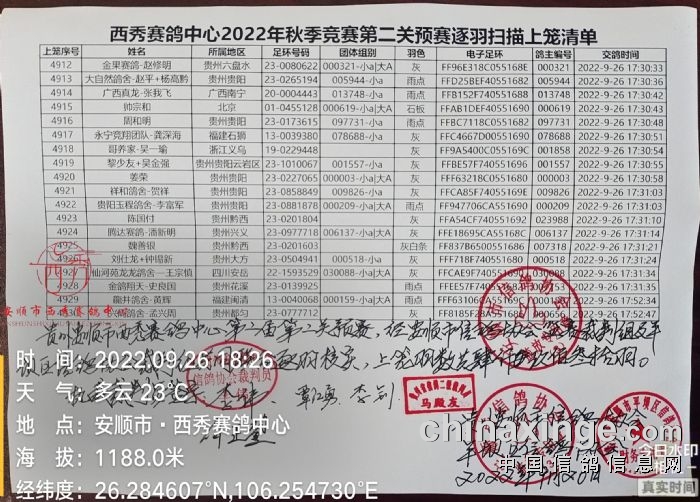 西秀赛鸽中心2022年秋季竞赛第二关预赛逐羽扫描上笼清单
上笼序号 姓名 所属地区 足环号码 团体组别 羽色 电子足环 鸽主编号 交鸽时间
4912 金果赛鸽-赵修明 贵州六盘水 23-0080622 000321-小a|大A 灰 FF96E318C055168E 000321 2022-9-26 17:30:33
4913 大自然鸽舍-赵平+杨高黔 贵州贵阳 23-0265194 005944-小a 雨点 FFD25BEF40551692 005944 2022-9-26 17:30:34
4914 广西真龙-张我飞 广西南宁 20-0004443 013748-小a 灰 FF8152F740551688 013748 2022-9-26 17:30:42
4915 帅宗和 北京 01-0455128 000619-小a|大A 石板 FFAB1DEF40551690 000619 2022-9-26 17:30:43
4916 周和明 贵州贵阳 23-0173615 097731-小a 雨点 FFBC7118C0551682 097731 2022-9-26 17:30:48
4917 永宁竞翔团队-龚深海 福建石狮 13-0039380 078688-小a 灰 FFC4667D00551690 078688 2022-9-26 17:30:51
4918 哥养家-吴一瑜 浙江义乌 19-0229448 灰 FF9A5400C055169C 001358 2022-9-26 17:30:54
4919 黎少友+吴金强 贵州贵阳云岩区 23-1010067 001557-小a 灰 FFBE57F740551696 001557 2022-9-26 17:30:58
4920 姜荣 贵州贵阳 23-0227065 000003-小a|大A 灰 FFF63218C0551680 000003 2022-9-26 17:31:00
4921 祥和鸽舍-贺祥 贵州贵阳 23-0858849 009826-小a 灰 FFCA85F74055169E 009826 2022-9-26 17:31:03
4922 贵阳玉程鸽舍-李富军 贵州贵阳 23-0881878 000209-小a|大A 雨点 FF947766C0551686 000209 2022-9-26 17:31:07
4923 陈国付 贵州黔西 23-0201804 灰 FFA54CF740551692 023988 2022-9-26 17:31:10
4924 腾达赛鸽-潘新明 贵州兴义 23-0977718 006137-小a|大A 灰 FFE18695C055168C 006137 2022-9-26 17:31:14
4925 魏善银 贵州黔西 23-0201603 灰白条 FF837B6500551686 007316 2022-9-26 17:31:21
4926 刘仕龙+钟锡新 贵州大方 23-0504941 000518-小a 灰 FFF718F740551680 000518 2022-9-26 17:31:24
4927 仙河苑龙龙鸽舍—王宗慎 四川安岳 22-1593529 030088-小a|大A 灰 FFCAE9F740551690 2022-9-26 17:31:34
4928 金鸽翔天-史良国 贵州花溪 23-0139295 雨点 FFEE57F74055169 2022-9-26 17:31:35
4929 龍井鸽舍-黄辉 福建闽清 13-0040068 000159-小a|大A 雨点 FFF63106 2022-9-26 17:31:39
孟兴鸽舍-孟兴周 贵州都匀 23-0277712 灰 FF8185F28 2022-9-26 17:31:42
安顺市西秀赛鸽中心
贵州安顺市西秀赛鸽中心第二届第二关预赛，经安顺市信鸽协会
李剑
信鸽协会裁判员
马殿友
时 间：2022.09.26 18:26
天 气：多云 23℃
地 点：安顺市·西秀赛鸽中心
海 拔：1188.0米
经纬度：26.284607°N,106.254730°E
chinaxinge.com
中国信鸽信息网
今日水印
相机
真实时间